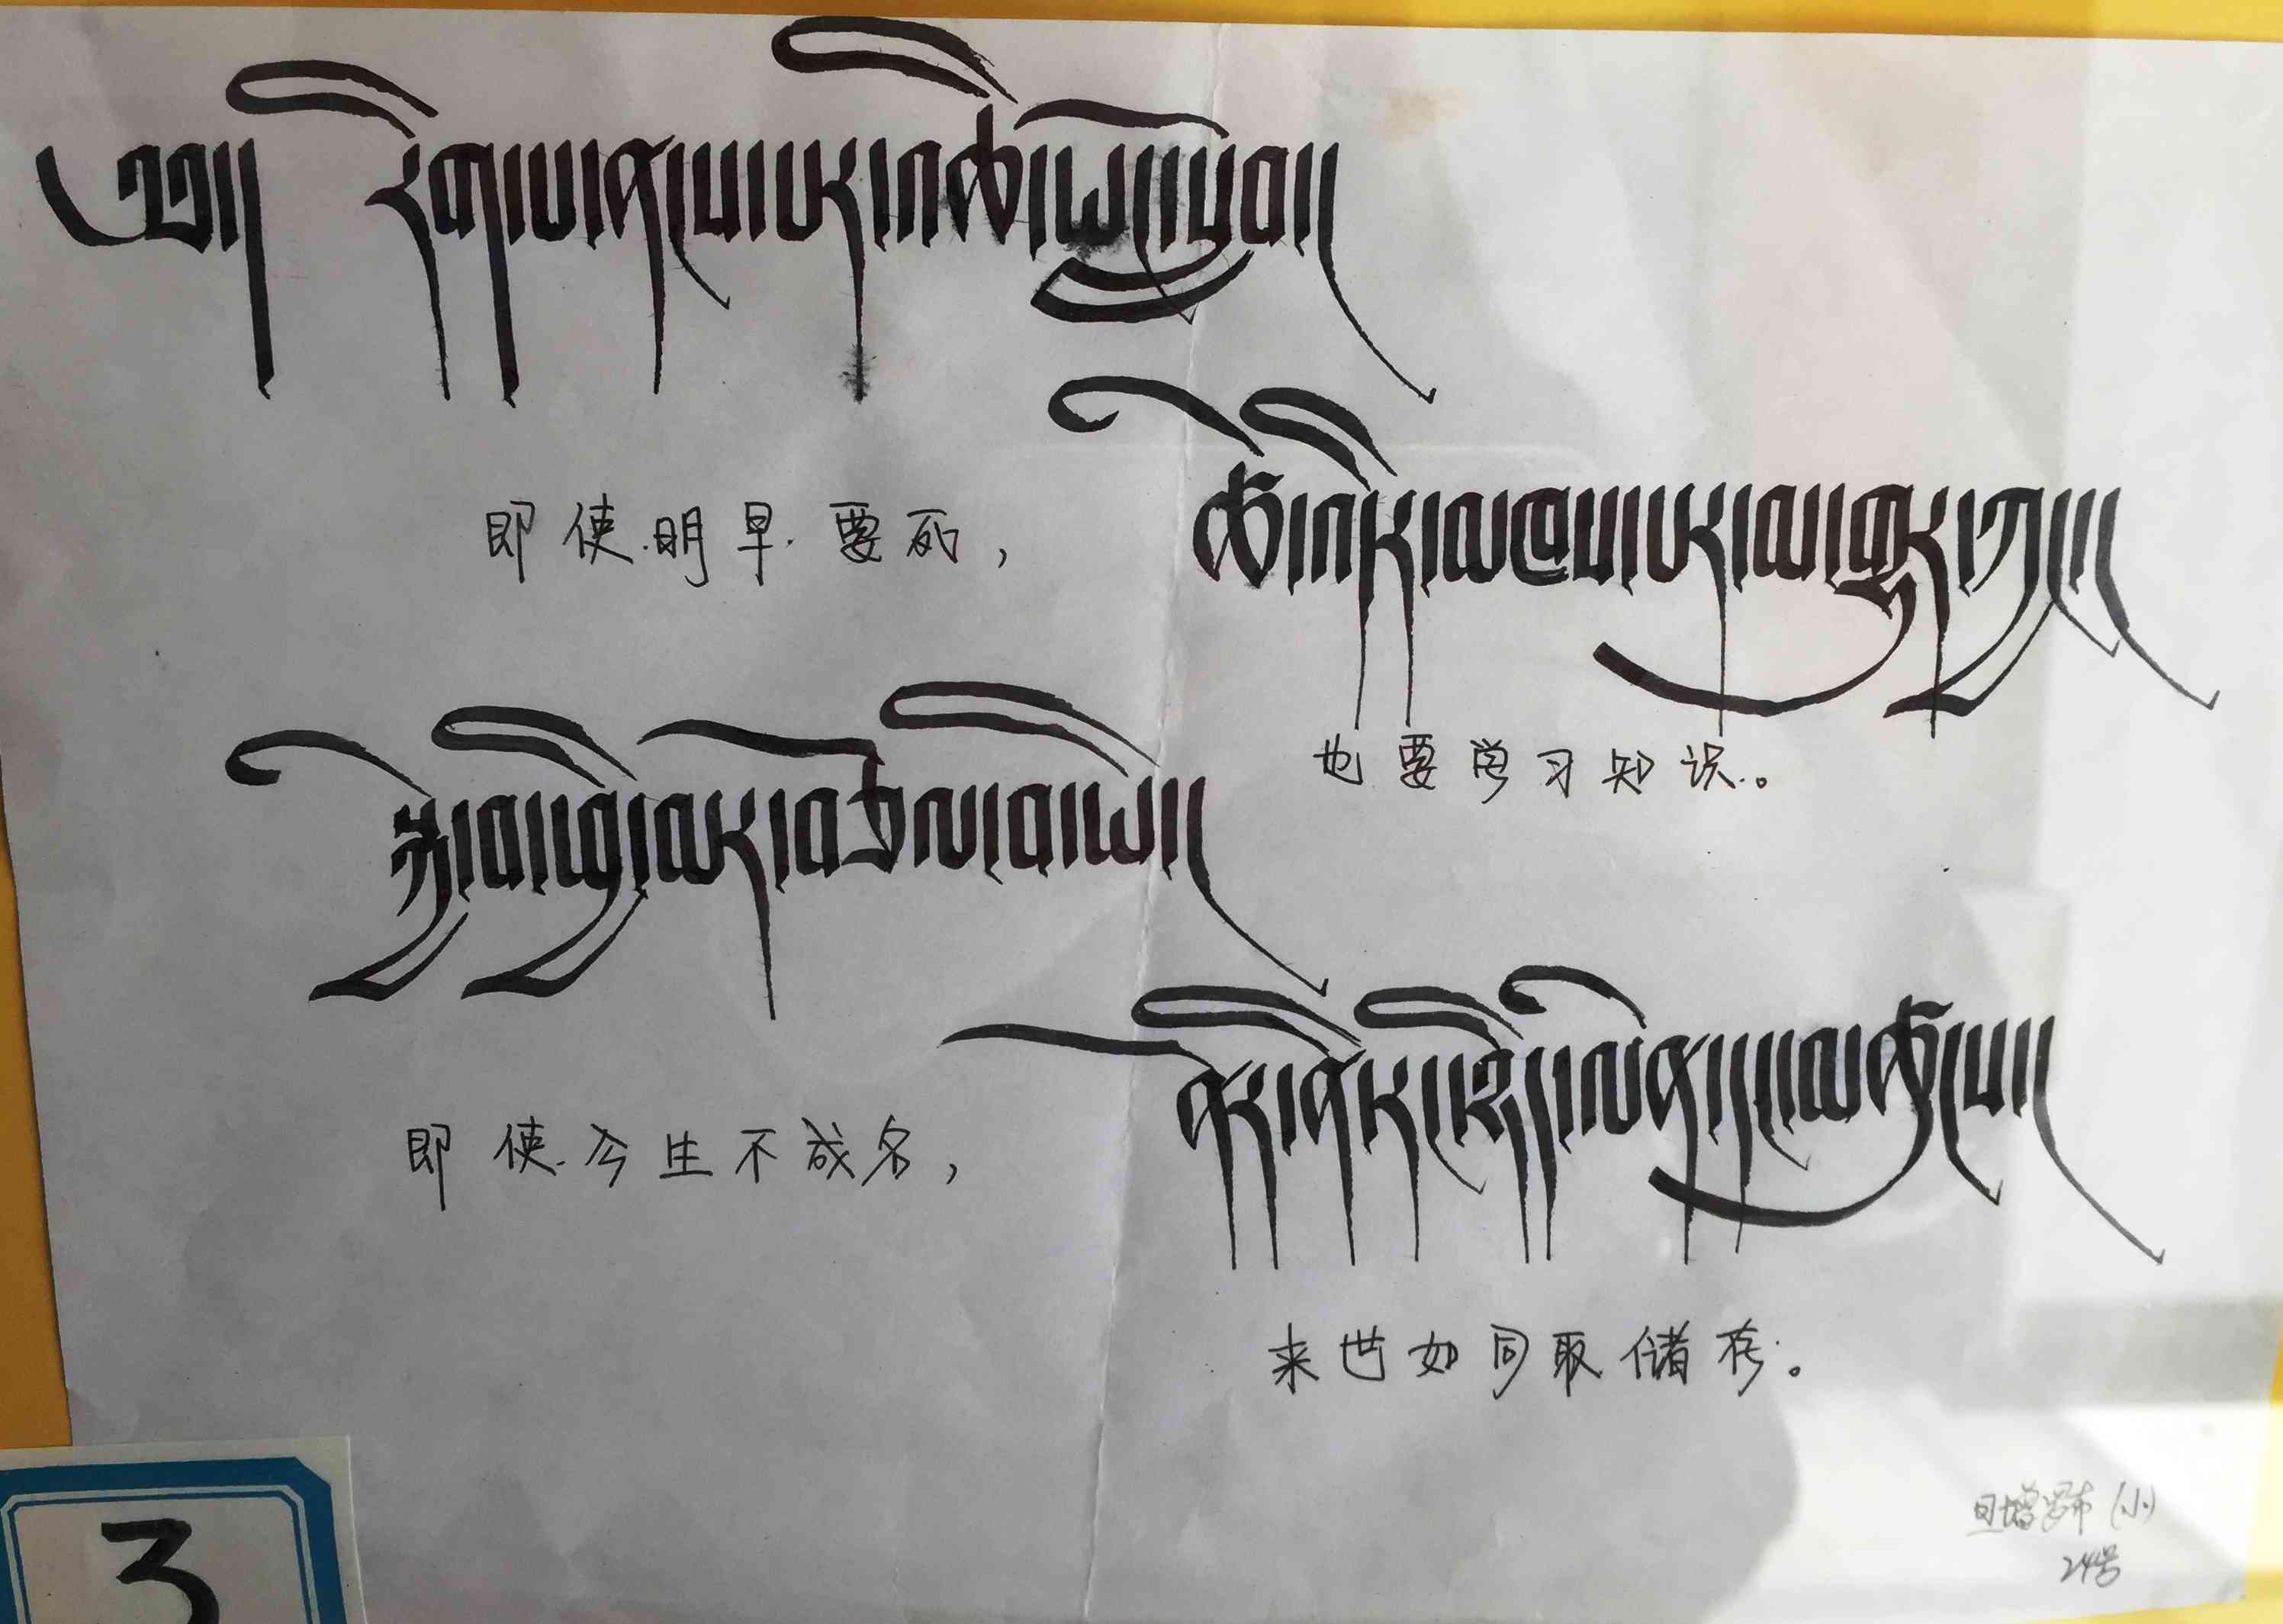 ༄༅།། རིག་པ་ནང་པར་འཆི་ཡང་བསླབ།།
即使明早要死，
ཚེ་འདིར་མཁས་པར་མ་གྱུར་ཀྱང་།།
也要学习知识。
སྐྱེ་བ་ཕྱི་མར་བཅོལ་བ་ཡི།།
即使今生不成名，
ནོར་ནི་རང་ཉིད་ལེན་དང་མཚུངས།།
来世如同取储存。
旦增罗布（小）
24号
3